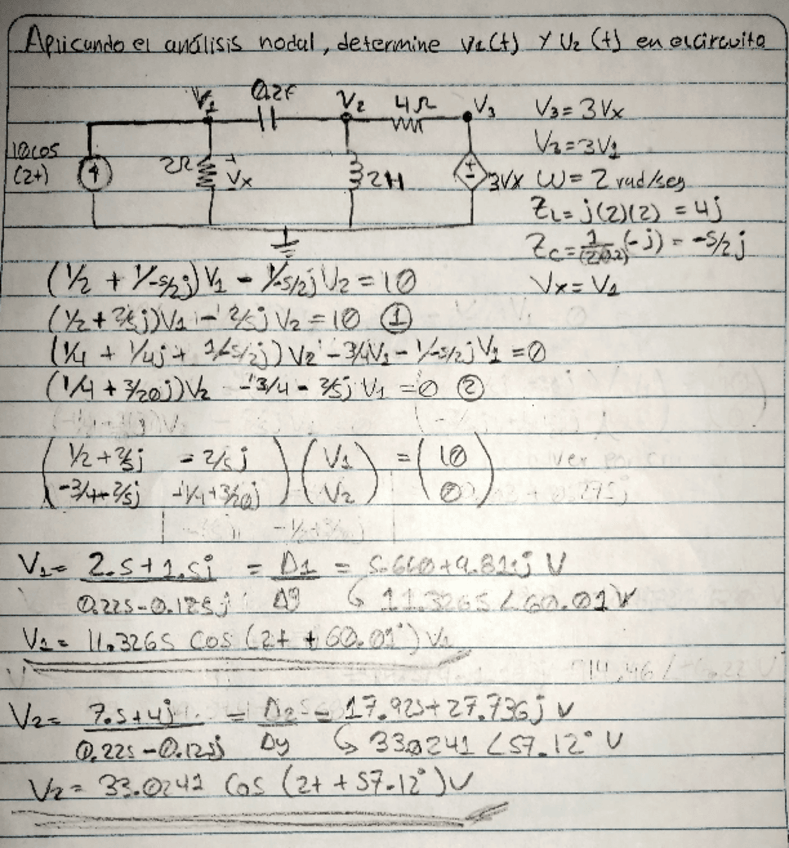 Aplicando el análisis nodal, determine V1(t) y V2(t) en el circuito
V1 0.2F V2 4Ω V3
10cos
(2t)
2Ω + Vx 2H + - 3Vx
V3 = 3Vx
V3 = 3V1
ω = 2 rad/seg
ZL = j(2)(2) = 4j
Zc = 1/(2)(0.2) (-j) = -5/2 j
Vx = V1
(1/2 + 1/-5/2j)V1 - 1/-5/2j V2 = 10
(1/2 + 2/5j)V1 - 2/5j V2 = 10 ①
(1/4 + 1/4j + 1/-5/2j)V2 - 3/4V1 - 1/-5/2j V1 = 0
(1/4 + 3/20j)V2 - 3/4 - 2/5j V1 = 0 ②
( 1/2 + 2/5j - 2/5j ) ( V1 ) = ( 10 )
( -3/4 - 2/5j 1/4 + 3/20j ) ( V2 ) ( 0 )
V1 = 2.5 + 1.5j = Δ1 = 5.660 + 9.811j V
0.225 - 0.125j Δy ↳ 11.3265 ∠60.01 V
V1 = 11.3265 cos (2t + 60.01°) V
V2 = 7.5 + 4j = Δ2 = 17.925 + 27.736j V
0.225 - 0.125j Δy ↳ 33.0241 ∠57.12° V
V2 = 33.0241 cos (2t + 57.12°) V